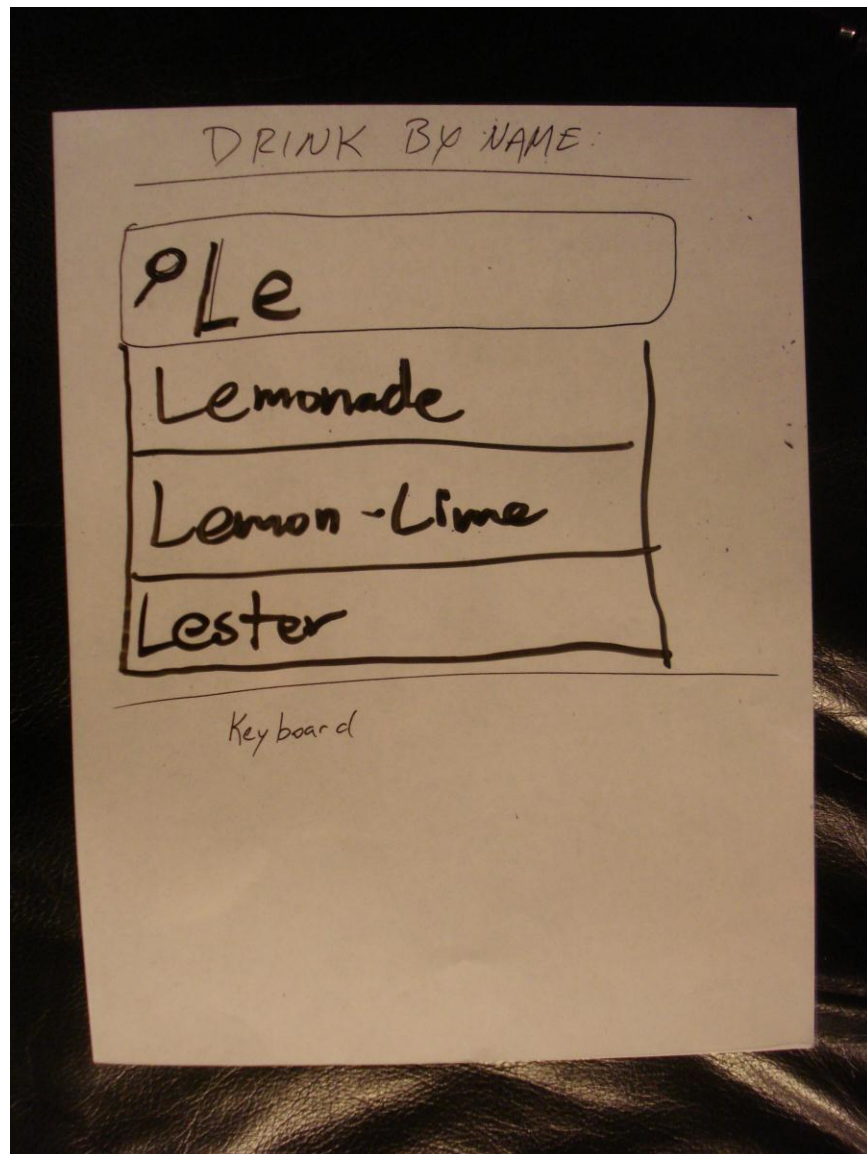 DRINK BY NAME:
Le
Lemonade
Lemon-Lime
Lester
Keyboard